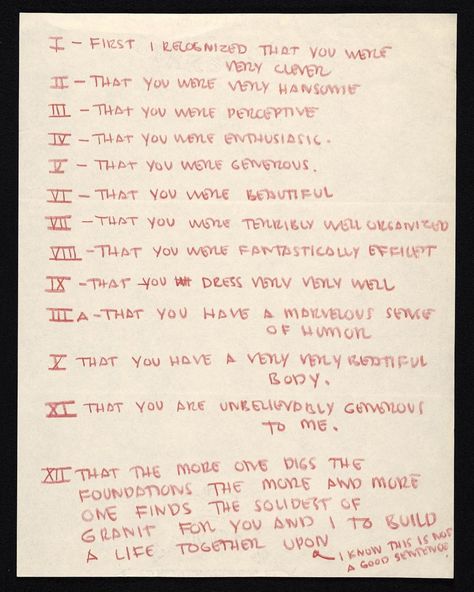 I - FIRST I RECOGNIZED THAT YOU WERE
VERY CLEVER
II - THAT YOU WERE VERY HANSOME
III - THAT YOU WERE PERCEPTIVE
IV - THAT YOU WERE ENTHUSIASIC.
V - THAT YOU WERE GENEROUS.
VI - THAT YOU WERE BEAUTIFUL
VII - THAT YOU WERE TERRIBLY WELL ORGANIZED
VIII - THAT YOU WERE FANTASTICALLY EFFICIET
IX - THAT YOU DRESS VERY VERY WELL
III A - THAT YOU HAVE A MARVELOUS SENSE
OF HUMOR
X THAT YOU HAVE A VERY VERY BEATIFUL
BODY.
XI THAT YOU ARE UNBELIEVABLY GENEROUS
TO ME.
XII THAT THE MORE ONE DIGS THE
FOUNDATIONS THE MORE AND MORE
ONE FINDS THE SOLIDEST OF
GRANIT FOR YOU AND I TO BUILD
A LIFE TOGETHER UPON
I KNOW THIS IS NOT
A GOOD SENTENCE